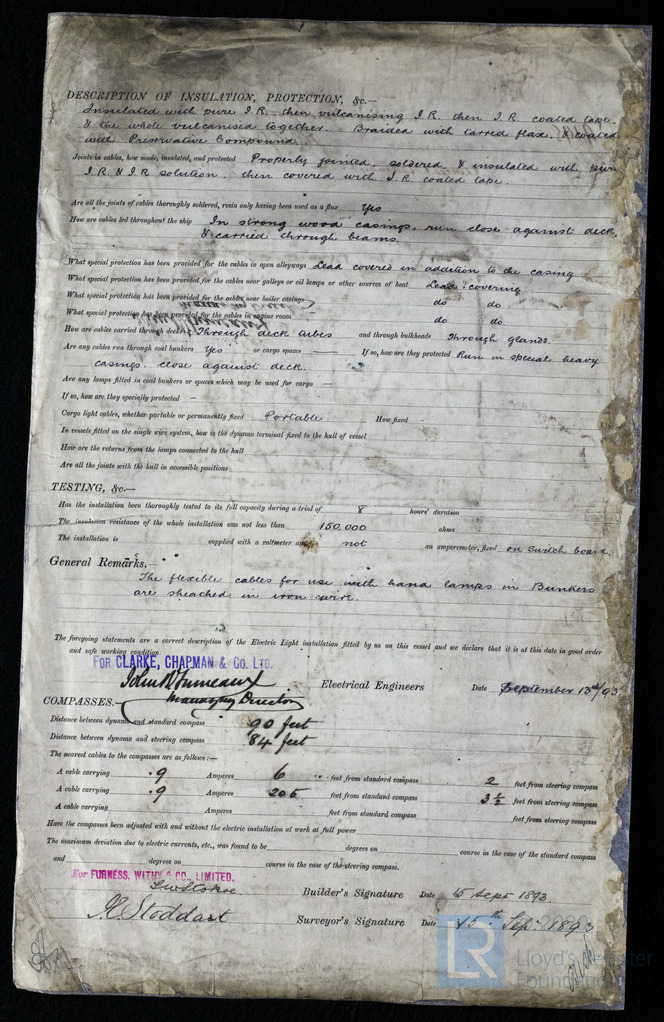 DESCRIPTION OF INSULATION, PROTECTION, &c.—
Insulated with pure I.R. then vulcanising I.R. then I.R. coated tape.
& the whole vulcanised together. Braided with tarred flax, & coated
with Preservative Compound.
Joints in cables, how made, insulated, and protected Properly joined, soldered & insulated with pure
I.R. & I.R solution, then covered with I.R coated tape.
Are all the joints of cables thoroughly soldered, resin only having been used as a flux Yes
How are cables led throughout the ship In strong wood casings, run close against deck,
& carried through beams.
What special protection has been provided for the cables in open alleyways Lead covered in addition to the casing
What special protection has been provided for the cables near galleys or oil lamps or other sources of heat Lead covering
What special protection has been provided for the cables near boiler casings do do
What special protection has been provided for the cables in engine room do do
How are cables carried through decks Through deck tubes and through bulkheads Through glands.
Are any cables run through coal bunkers Yes or cargo spaces — If so, how are they protected Run in special heavy
casings close against deck.
Are any lamps fitted in coal bunkers or spaces which may be used for cargo —
If so, how are they specially protected —
Cargo light cables, whether portable or permanently fixed Portable How fixed
In vessels fitted on the single wire system, how is the dynamo terminal fixed to the hull of vessel
How are the returns from the lamps connected to the hull
Are all the joints with the hull in accessible positions
TESTING, &c.—
Has the installation been thoroughly tested to its full capacity during a trial of 8 hours' duration
The insulation resistance of the whole installation was not less than 150,000 ohms
The installation is supplied with a voltmeter and not an amperemeter, fixed on switch board.
General Remarks.—
The flexible cables for use with hand lamps in Bunkers
are sheached in iron wire.
The foregoing statements are a correct description of the Electric Light installation fitted by us on this vessel and we declare that it is at this date in good order
and safe working condition
FOR CLARKE, CHAPMAN & CO. LTD.
John W Furneaux Electrical Engineers Date September 13th/93
Managing Director
COMPASSES.—
Distance between dynamo and standard compass 90 feet
Distance between dynamo and steering compass 84 feet
The nearest cables to the compasses are as follows:—
A cable carrying .9 Amperes 6 feet from standard compass 2 feet from steering compass
A cable carrying .9 Amperes feet from standard compass 3 ½ feet from steering compass
A cable carrying Amperes feet from standard compass feet from steering compass
Have the compasses been adjusted with and without the electric installation at work at full power
The maximum deviation due to electric currents, etc., was found to be degrees on course in the case of the standard compass
and degrees on course in the case of the steering compass.
For FURNESS, WITHY & CO., LIMITED.
Builder's Signature Date 15 Sept 1893.
Stoddart Surveyor's Signature Date 15th Sep. 1893
LR Lloyd's Register
Foundation